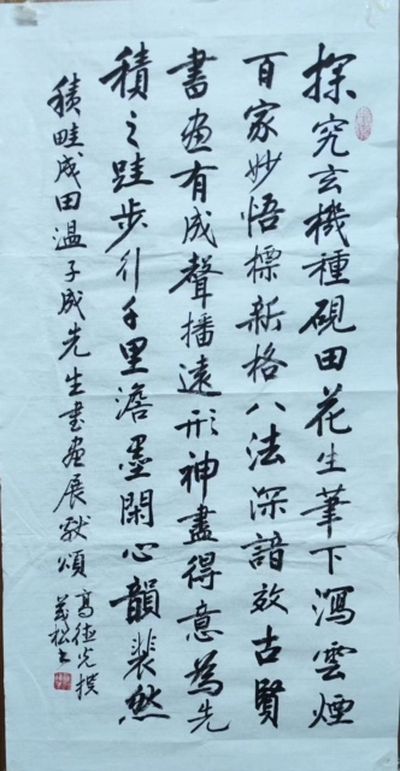 探究玄機種硯田花生筆下瀉雲煙
百家妙悟標新格八法深諳效古賢
書画有成聲播遠形神盡得意為先
積之跬步行千里澹墨閑心韻裴然
積畦成田温子成先生书画展献頌
高德光撰
義松书